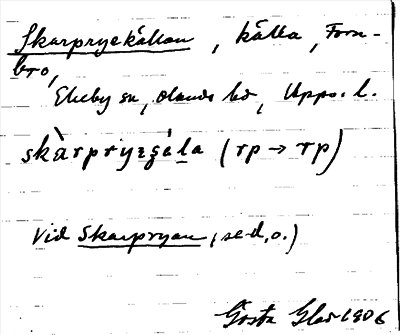 Skarpryekällan, källa, Forn-
bro,
Ekeby sn, Olands hd, Upps. l.
skàrprỳɛʒɛ́la (rp → rp)
Vid Skarpryan, (se d.o.)
Gösta 1906